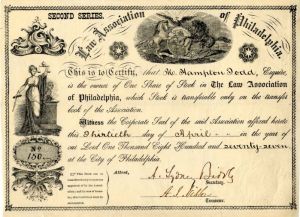 SECOND SERIES.
Law Association of Philadelphia.
This is to Certify, that M. Hampton Todd, Esquire,
is the owner of One Share of Stock in The Law Association
of Philadelphia, which Stock is transferable only on the transfer
book of the Association.
Witness the Corporate Seal of the said Association affixed hereto
this Thirtieth day of April in the year of
our Lord One Thousand Eight Hundred and seventy-seven
at the City of Philadelphia.
No
150
Attest,
A. Sydney Biddle
Secretary.
Treasurer.